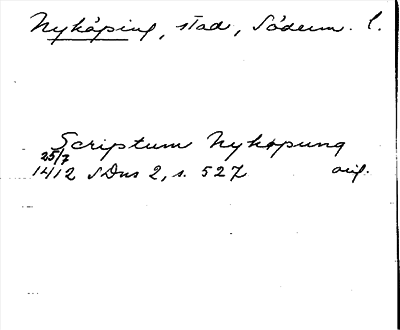 Nyköping, stad, Söderm. l.
Scriptum Nykopung
25/7
1412 SDns 2, s. 527 orig.